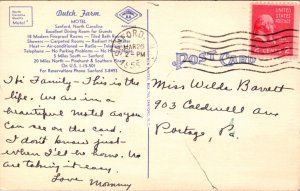 North Carolina
Quality
Motel
Dutch Farm
MOTEL
Sanford, North Carolina
Excellent Dining Room for Guests
18 Modern Fireproof Rooms - Tiled Bath
Showers - Carpeted Rooms - Radiant
Heat - Air-conditioned - Radio - Telephone
Television
5 Miles South - Sanford
20 Miles North - Pinehurst & Southern Pines
On U.S. 1 - (S-90)
For Reservations Phone Sanford 3-8493
SANFORD
MAR 28
2 PM
1955
POST CARD
Hi Family - This is the
life. We are in a
beautiful Motel as you
can see on the card.
I don't know just
when I'll be home. We
are taking it easy.
Love Mommy
Miss Wilda Barrett
903 Caldwell Ave
Portage, Pa.